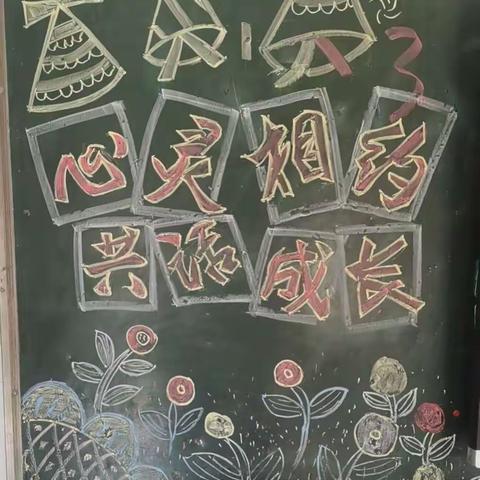 心灵相约
共话成长